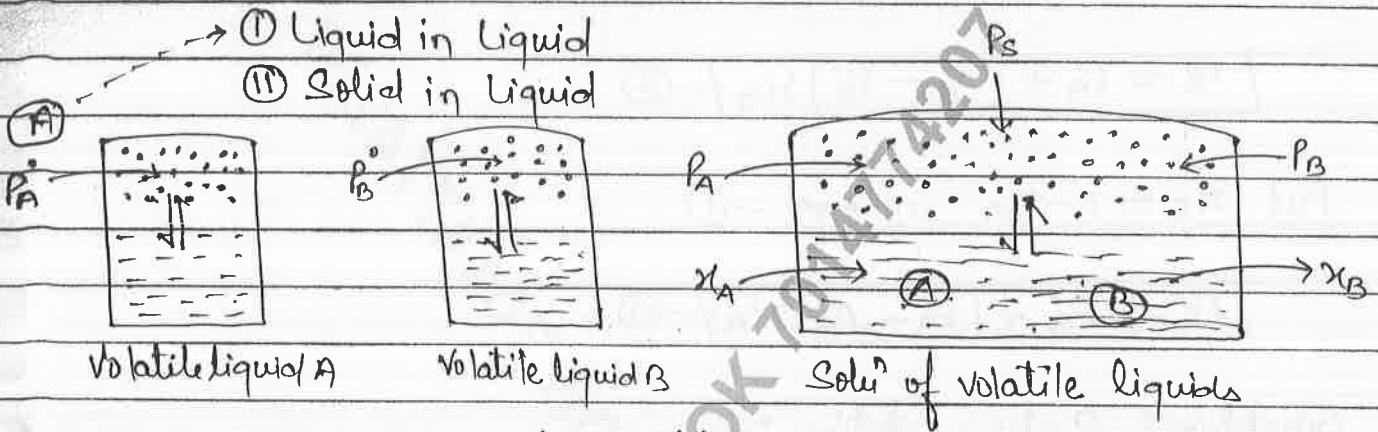 → Ⓘ Liquid in Liquid
Ⓘⓘ Solid in Liquid
Ps
A
P°A
P°B
PA
PB
xA
A
B
xB
Volatile liquid A
Volatile liquid B
Soluⁿ of volatile liquids